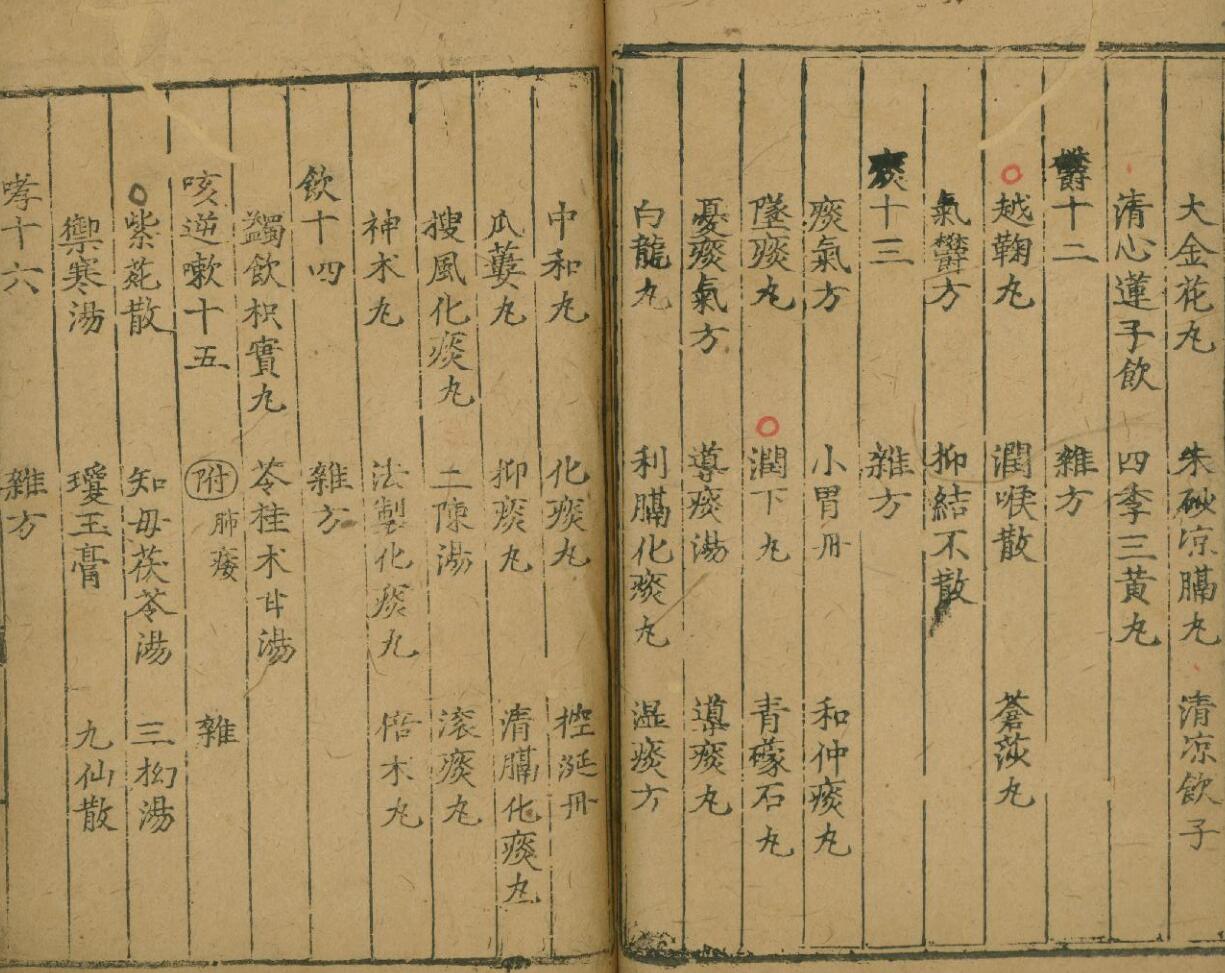 大金花丸 朱砂凉膈丸 清凉飲子
清心蓮子飲 四季三黄丸
鬱十二 雜方
越鞠丸 潤喉散 蒼莎丸
氣鬱方 抑結不散
痰十三 雜方
痰氣方 小胃丹 和仲痰丸
墜痰丸 潤下丸 青礞石丸
憂痰氣方 導痰湯 導痰丸
白龍丸 利膈化痰丸 濕痰方
中和丸 化痰丸 控涎丹
瓜蔞丸 抑痰丸 清膈化痰丸
搜風化痰丸 二陳湯 滚痰丸
神术丸 法製化痰丸 倍术丸
飲十四 雜方
蠲飲枳實丸 苓桂术甘湯
咳逆嗽十五 附肺痿 雜
紫菀散 知母茯苓湯 三拗湯
禦寒湯 瓊玉膏 九仙散
哮十六 雜方